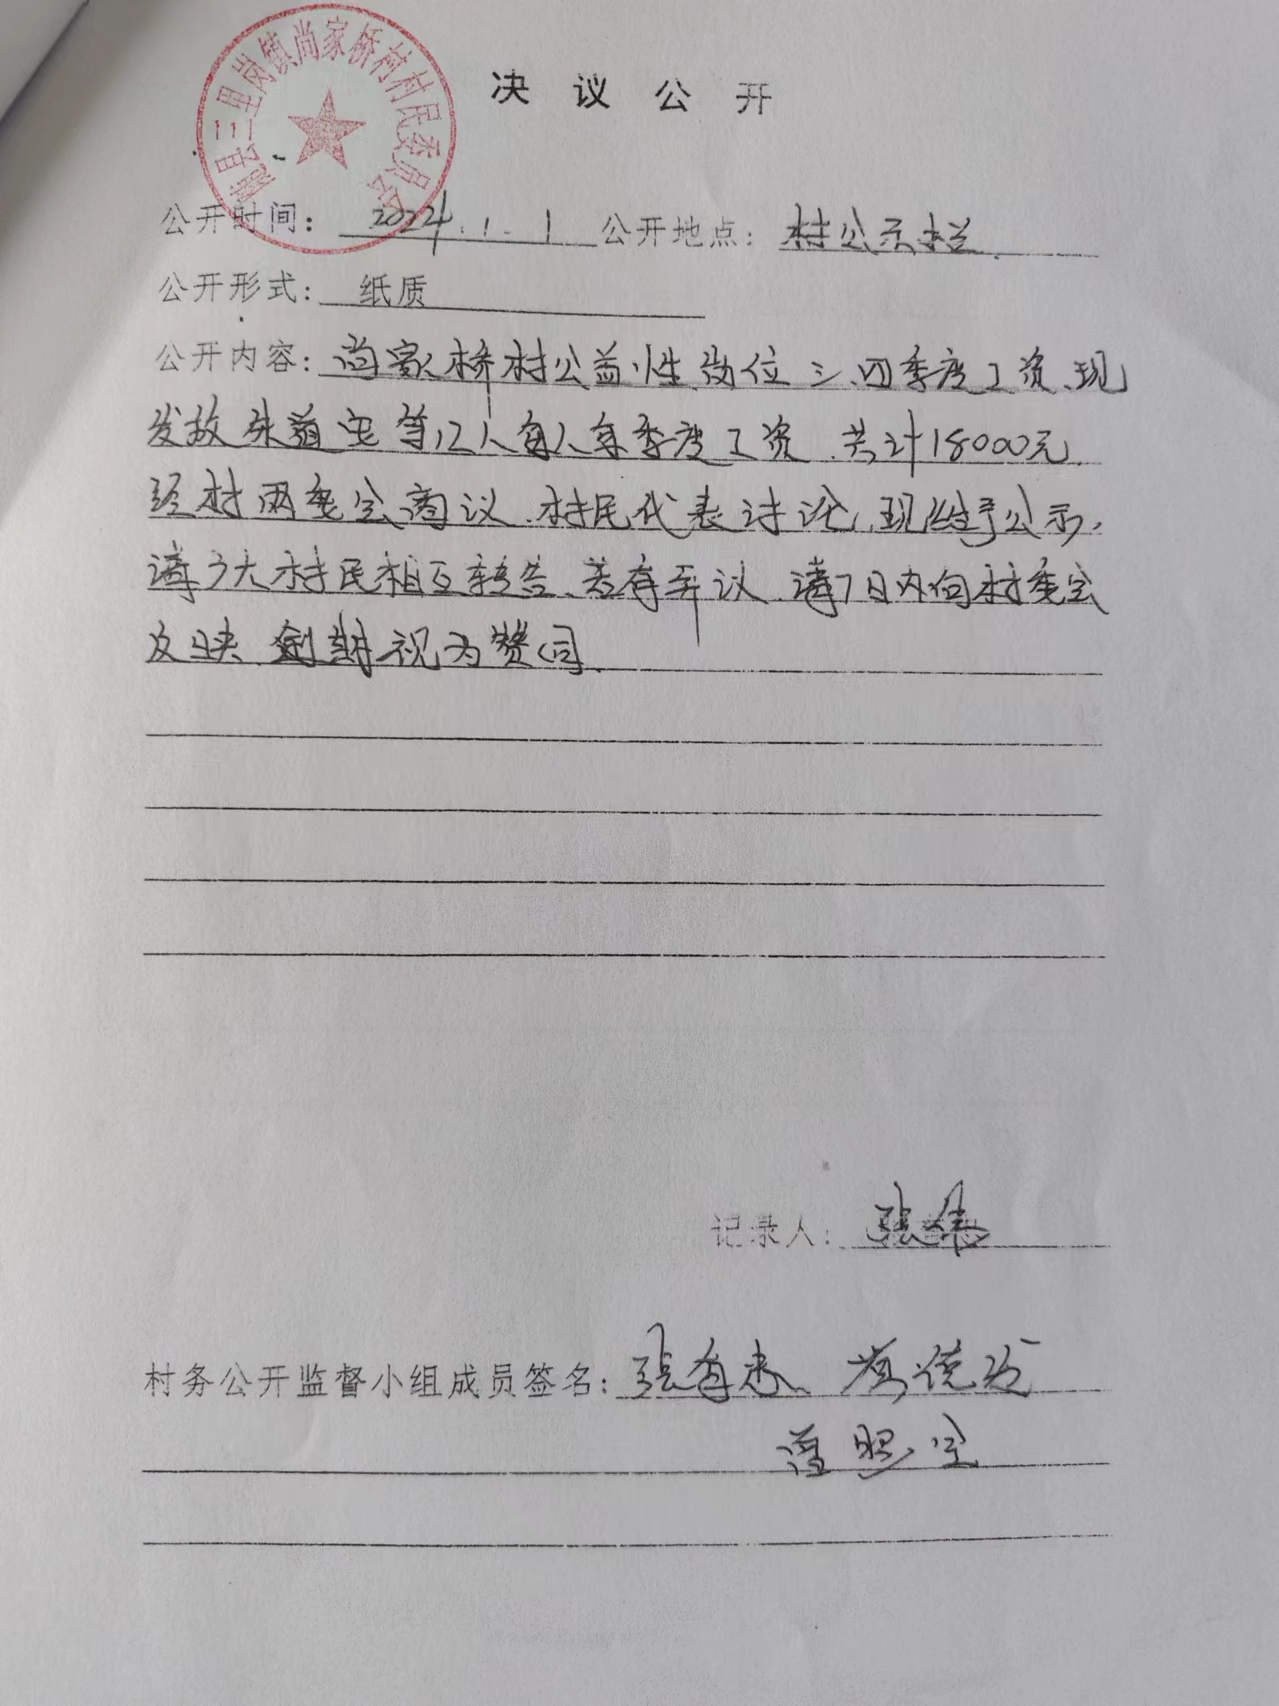 随县三里岗镇尚家桥村村民委员会
决 议 公 开
公开时间: 2024.1.1 公开地点: 村公示栏
公开形式: 纸质
公开内容: 尚家桥村公益性岗位三、四季度工资、现
发放朱 等12人每人每季度工资、共计18000元、
经村两委会商议、村民代表讨论、现给予公示,
请广大村民相互转告、若有异议、请7日内向村委会
反映、 视为赞同、
记录人: 张伟
村务公开监督小组成员签名: 张有